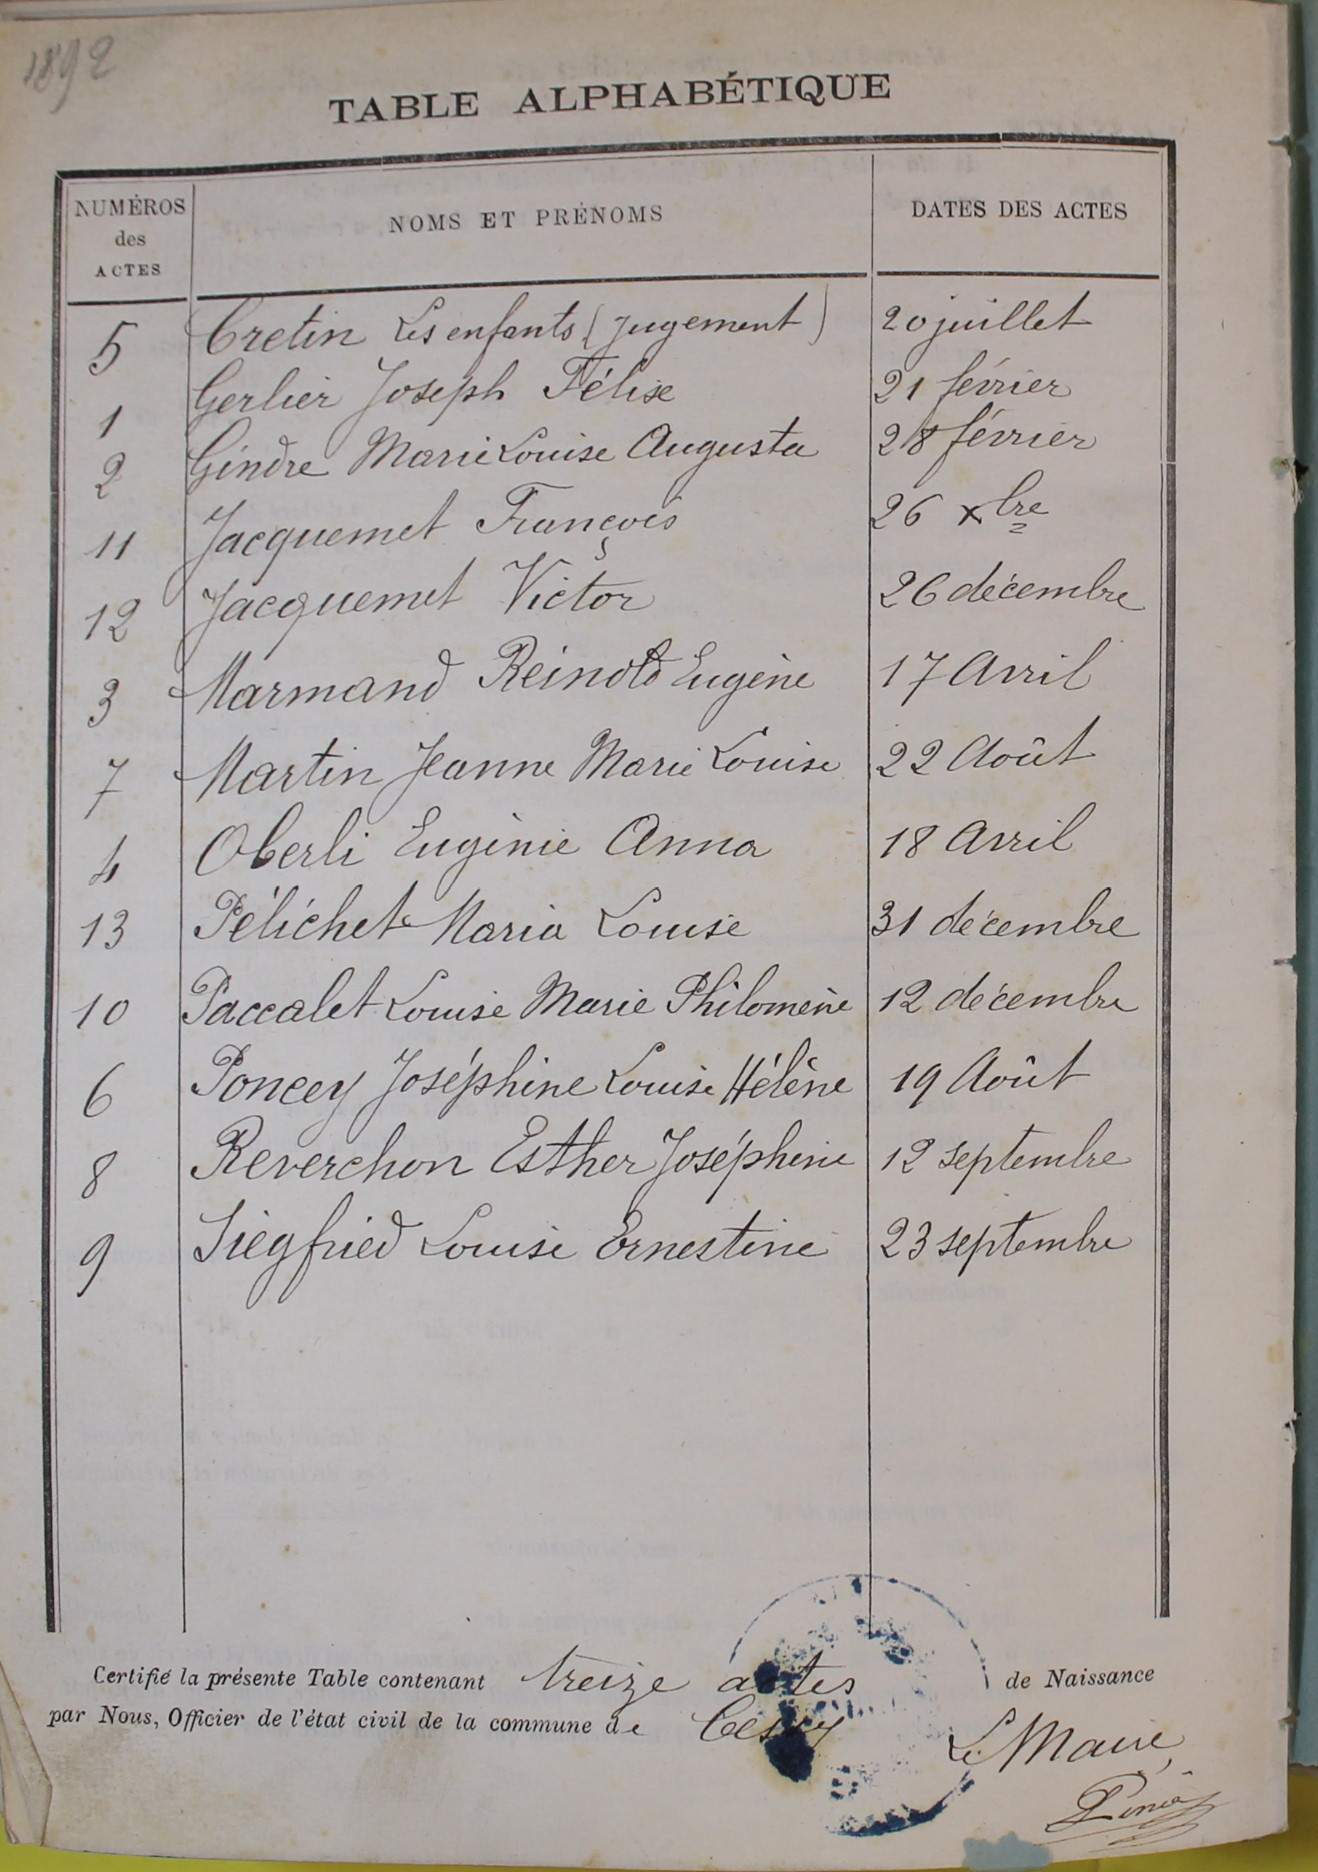 1892
TABLE ALPHABÉTIQUE
NUMÉROS des ACTES NOMS ET PRÉNOMS DATES DES ACTES
5 Cretin Les enfants (jugement) 20 juillet
1 Gerlier Joseph Félix 21 février
2 Gindre Marie Louise Augusta 28 février
11 Jacquemet François 26 xbre
12 Jacquemet Victor 26 décembre
3 Marmand Reinold Eugène 17 Avril
7 Martin Jeanne Marie Louise 22 Août
4 Oberli Eugénie Anna 18 Avril
13 Pélichet Maria Louise 31 décembre
10 Paccalet Louise Marie Philomène 12 décembre
6 Poncey Joséphine Louise Hélène 19 Août
8 Reverchon Esther Joséphine 12 septembre
9 Siegfried Louise Ernestine 23 septembre
Certifié la présente Table contenant treize actes de Naissance
par Nous, Officier de l'état civil de la commune de Cessy
Le Maire